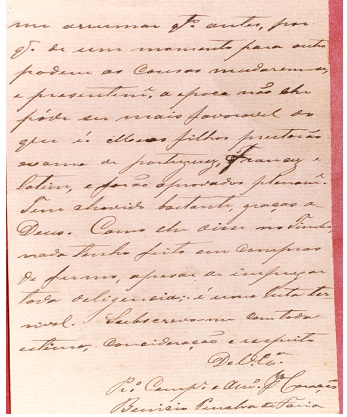 me arrumar q.to antes, por
q. de um momento para outro
podem as cousas mudarem-se,
e presentem.e a epoca não lhe
póde ser mais favoravel do
que é. Meos filhos prestarão
exame de portuguez, Francez e
latim, e forão aprovados plenam.e
Tem chovido bastante, graças a
Deus. Como lhe disse no
nada tenho feito em compras
de fumo, apesar de impregar
toda deligencia; é uma luta ter
rivel. Subscrevo-me com toda
estima, consideração e respeito
De
Pr.o Comp.e e Am.o Coração
Benicio Penalva de Faria